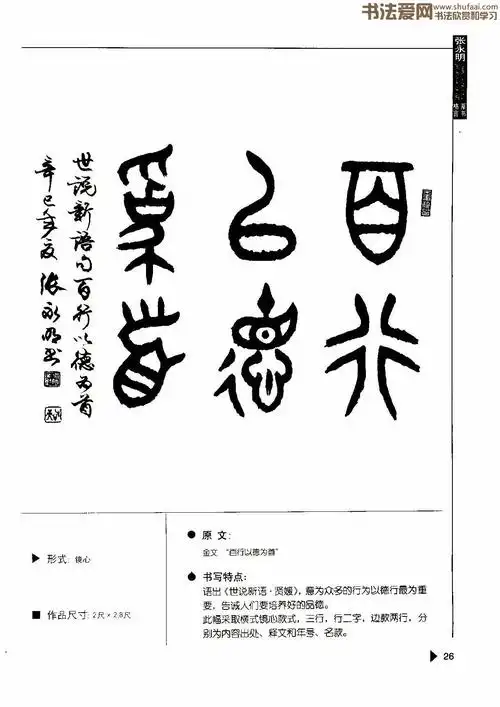 书法爱网
www.shufaai.com
书法欣赏和学习
张永明
篆书
格言
百行
以德
为首
世说新语句百行以德为首
辛巳年夏张永明书
▶ 形式: 镜心
■ 作品尺寸: 2尺×2.8尺
● 原文:
金文 “百行以德为首”
● 书写特点:
语出《世说新语·贤媛》，意为众多的行为以德行最为重
要，告诫人们要培养好的品德。
此幅采取横式镜心款式，三行，行二字，边款两行，分
别为内容出处、释文和年号、名款。
▶ 26